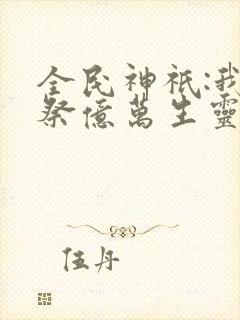 全民神祇:我
祭億萬生靈
伍丹